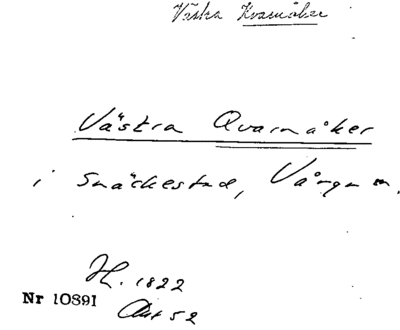 Västra Kvarnåker
Västra Qvarnåker
i Snäckestad, Vånga
H. 1822
Nr 10891
Akt 52